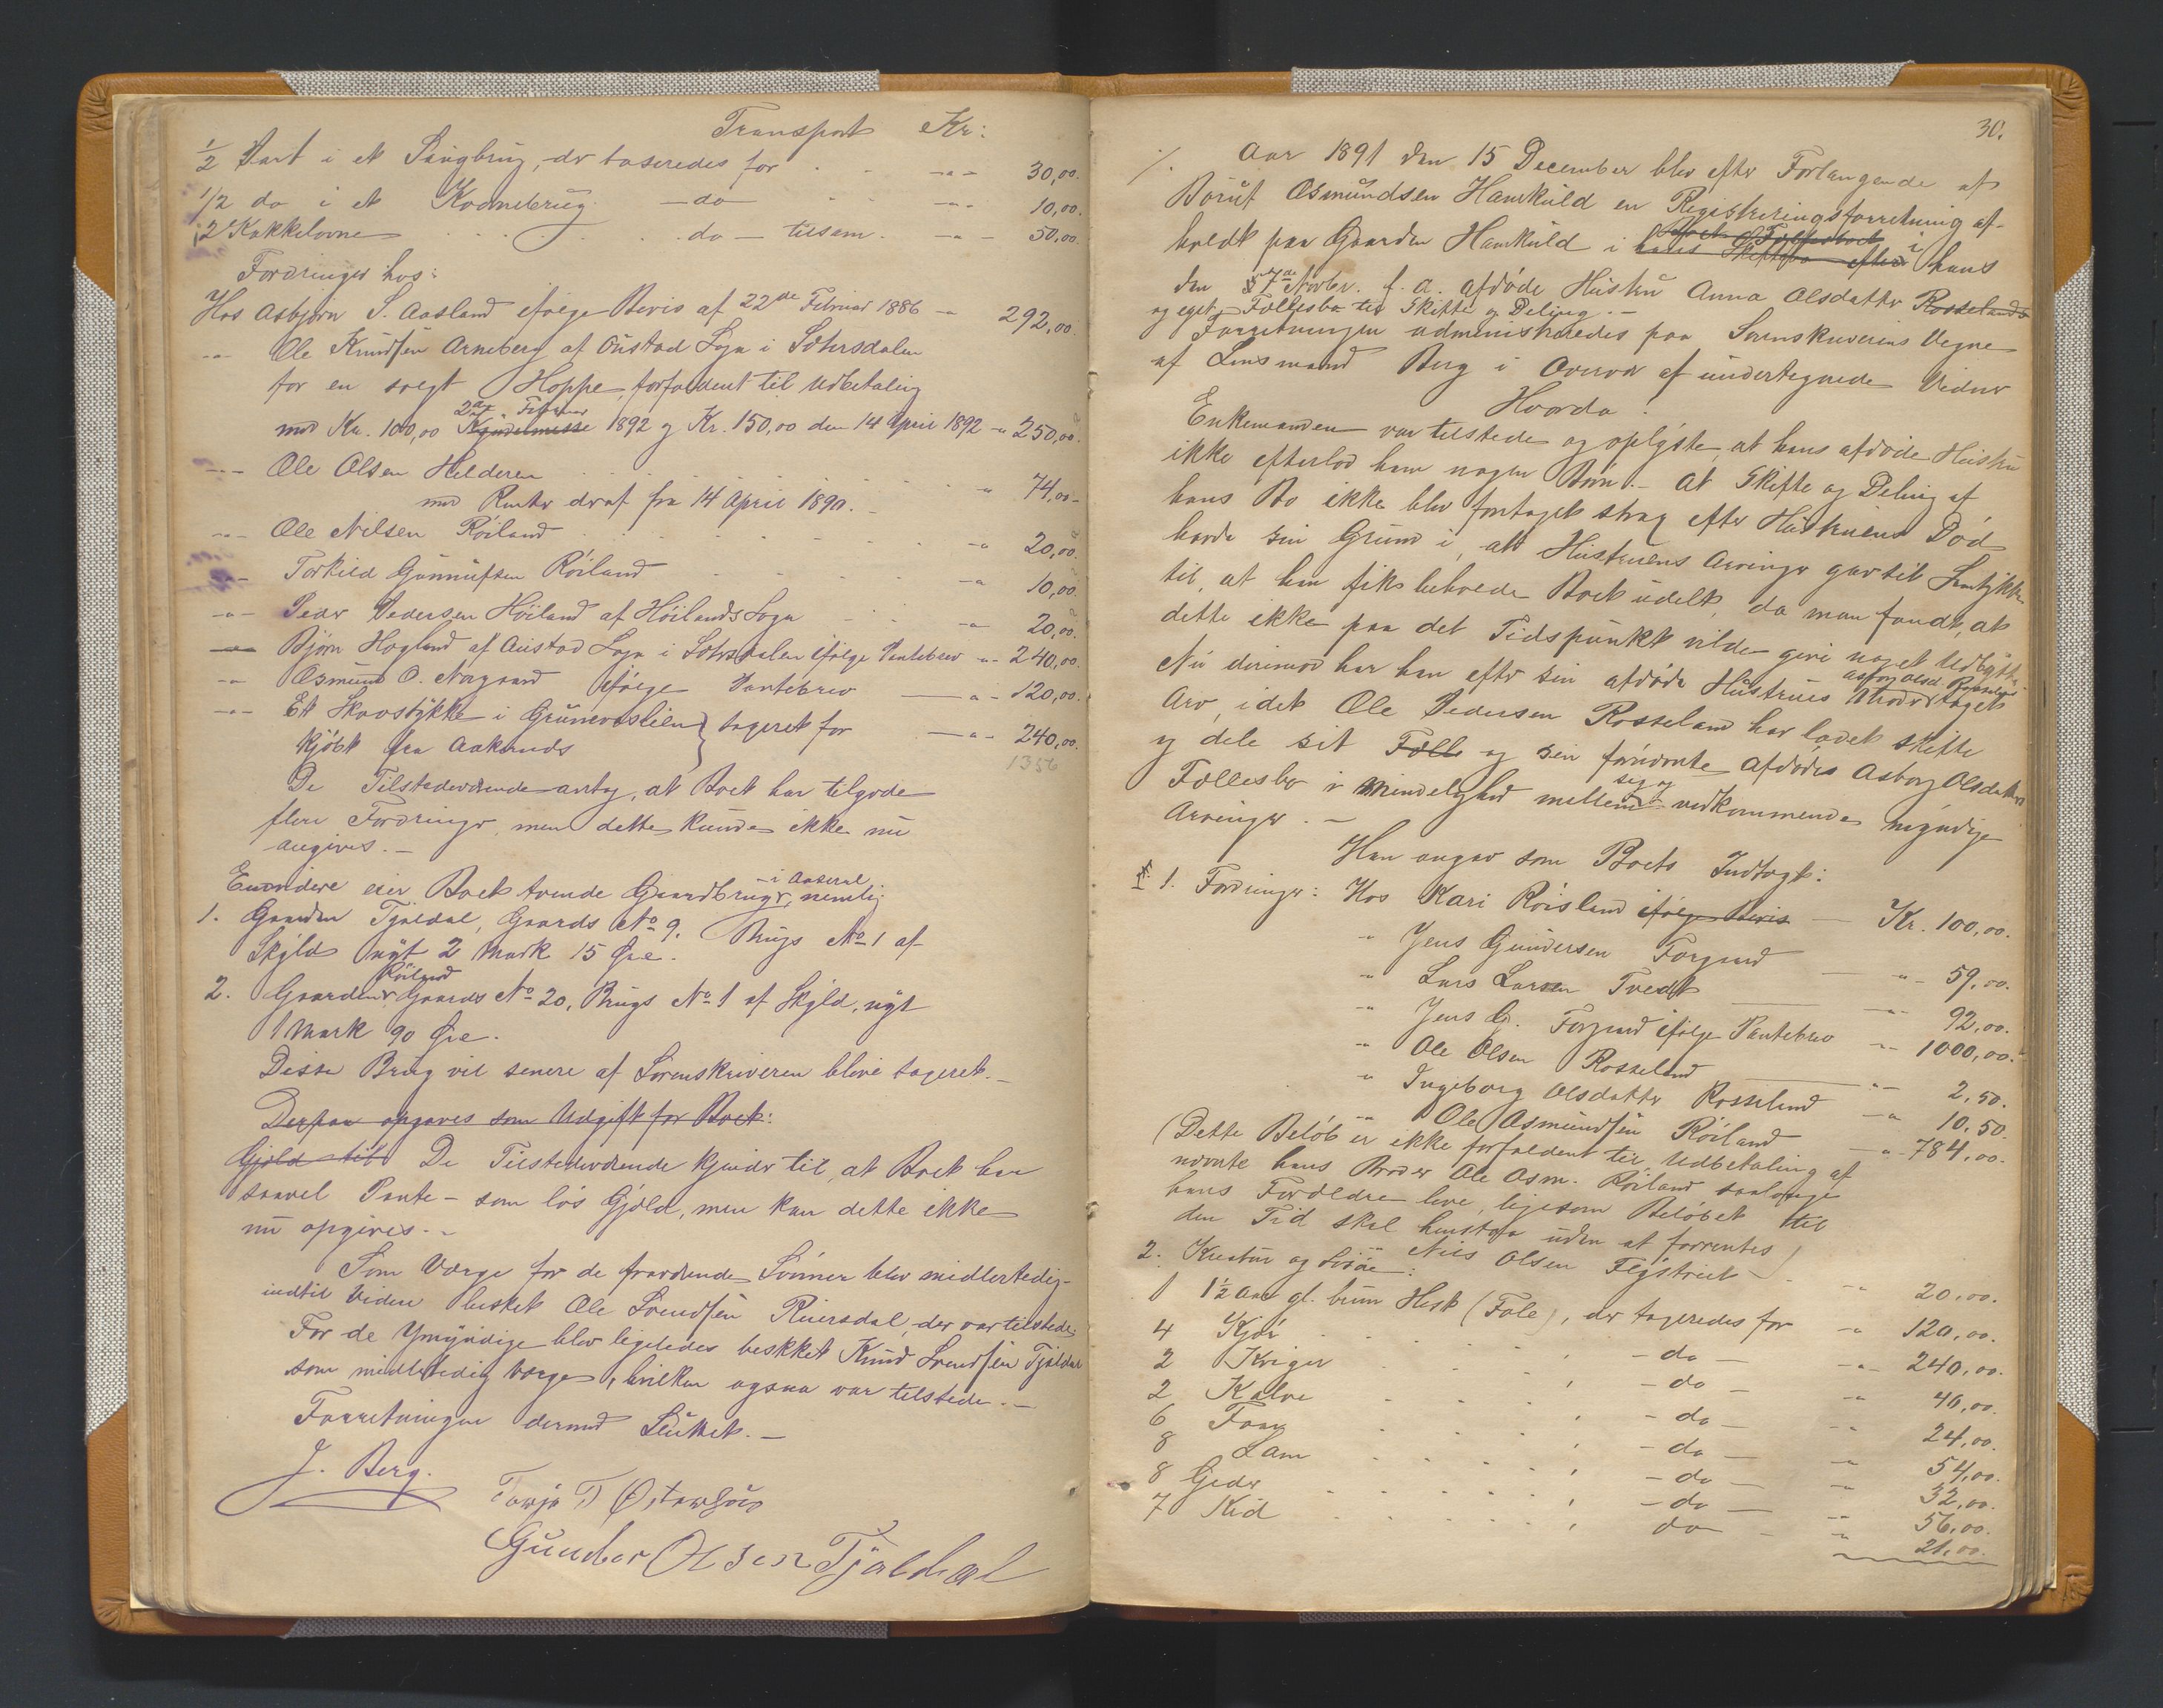 Transport Kr:
1/2 Part i et Saugbrug, der taxeredes for . . -"- 30,00.
1/2 do i et Kornebrug - do - . . -"- 10,00.
2 Kakkelovne . . . . do - tilsam. -"- 50,00.
Fordringer hos:
Hos Asbjørn S. Aasland ifølge Bevis af 22de Februar 1886 -" 292,00.
-"- Ole Knudsen Arneberg af Øustad Sogn i Sætersdalen
for en solgt Hoppe, forfaldent til Udbetaling
2de Februar
med Kr. 100,00 Kyndelmesse 1892 og Kr. 150,00 den 14 April 1892 -" 250,00.
-"- Ole Olsen Helderen . . . . . " 74,00-
med Renter deraf fra 14 April 1890. -
-"- Ole Nilsen Røiland . . . . . -" 20,00.
-"- Torkild Gunnufsen Røiland . . . . -" 10,00.
-"- Peder Pedersen Høiland af Høilands Sogn . . -" 20,00.
-"- Bjørn Hogland af Austad Sogn i Sætersdalen ifølge Pantebrev -"- 240,00.
-"- Osmund O. Aargaard ifølge Pantebrev -"- 120,00.
-"- Et Skovstykke i Grunevaslien } taxeret for -"- 240,00.
kjøbt fra Aaknuds
1356
De Tilstedeværende antog, at Boet har tilgode
flere Fordringer, men dette kunde ikke nu
angives. -
- i Aaseral
Envidere eier Boet tvende Gaardbrug, nemlig
1. Gaarden Tjaldal, Gaards No 9. Brugs No 1 af
Skyld nyt 2 Mark 15 Øre.
Røiland
2. Gaarden Gaards No 20, Brugs No 1 af Skyld, nyt
1 Mark 90 Øre.
Disse Brug vil senere af Sorenskriveren blive taxeret. -
Derpaa opgaves som Udgift for Boet:
Gjæld til De Tilstedeværende kjender til, at Boet har
saavel Pante- som løs Gjæld, men kan dette ikke
nu opgives. -
Som Værge for de fraværende Sønner blev midlertidig
indtil videre beskket Ole Svendsen Reiersdal, der var tilstede;
For de Umyndige blev ligeledes beskket Knud Svendsen Tjaldal
som midlertidig Værge, hvilken ogsaa var tilstede. -
Forretningen dermed sluttet. -
J. Berg.
Tarje T
Gunder Olsen Tjaldal
30.
Aar 1891 den 15 December blev efter Forlangende af
Børut Osmundsen Hamkuld en Registreringsforretning af-
holdt paa Gaarden Hamkuld i hans Skiftebo efter hans
den 7de Novbr. f. a. afdøde Hustru Anna Olsdatter Rosseland
og eget Fællesbo til Skifte og Deling. -
Forretningen administreredes paa Sorenskriverens Vegne
af Lensmand Berg i Overvær af undertegnede Vidner
Hvorda:
Enkemanden var tilstede og oplyste, at hans afdøde Hustru
ikke efterlod ham nogen Børn. - At Skifte og Deling af
hans Bo ikke blev foretaget strax efter Hustruens Død
havde sin Grund i, at Hustruens Arvinger gav sit Samtykke
til, at han fik beholde Boet udelt, da man fandt, at
dette ikke paa det Tidspunkt vilde give noget Udbytte.
Nu derimod har han efter sin afdøde Hustrues Moder taget
Arv, idet Ole Pedersen Rosseland har ladet skifte
og dele sit Fælle og sin fornævnte afdøde Asborg Olsdatters
sig og
Fællesbo i Mindelighed mellem vedkommende myndige
Arvinger. -
Han angav som Boets Indtægt:
1. Fordringer: Hos Kari Røisland ifølge Bevis - Kr. 100,00.
" Jens Gundersen Forgard -"- 59,00.
" Lars Larsen Tvedt -"- 92,00.
" Jens G. Forgard ifølge Pantebrev -"- 1000,00.
" Ole Olsen Rosseland -"- 2,50.
" Ingeborg Olsdatter Rosseland -" 10,50.
" Ole Asmundsen Røiland -"- 784,00.
(Dette Beløb er ikke forfaldent til Udbetaling af
nævnte hans Broder Ole Osm. Røiland saalænge
hans Forældre leve, ligesom Beløbet til
den Tid skal henstaa uden at forrentes)
" Nils Olsen -" 20,00.
2. Kreatur og :
1 1 1/2 Aar gl. brun Hest (Fole), der taxeredes for -" 120,00.
4 Kjør . . . . - do - -"- 240,00.
2 Kviger . . . . - do - -" 40,00.
2 Kalve . . . . - do - -" 24,00.
6 Faar . . . . - do - -" 54,00.
8 Lam . . . . - do - -" 32,00.
8 Geder . . . . - do - -" 56,00.
7 Kid . . . . do - -" 21,00.